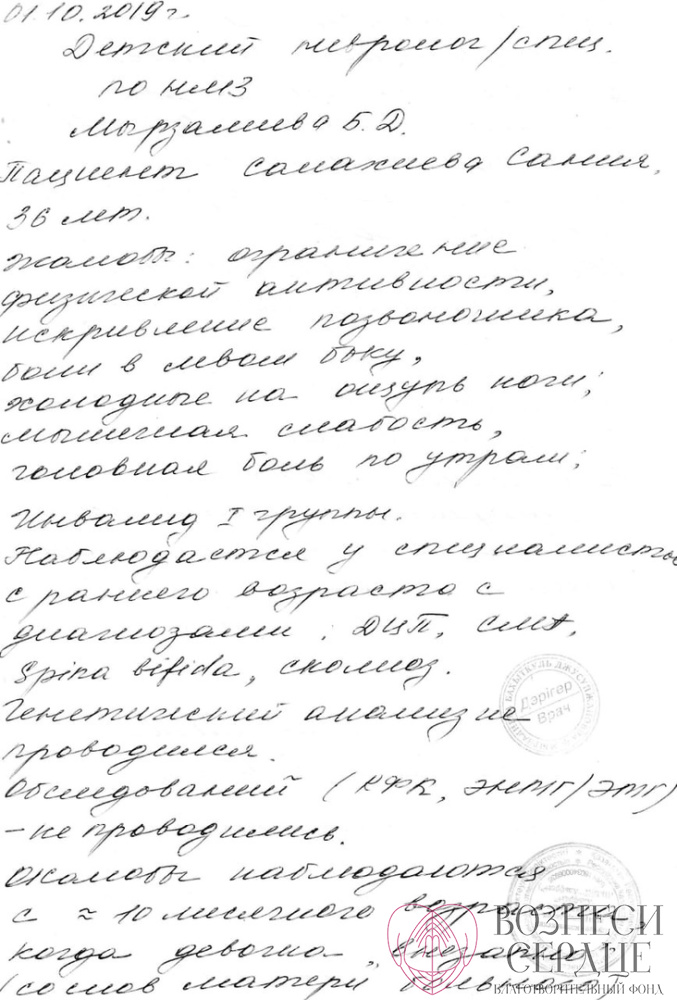 01.10.2019 г.
Детский невролог/спец.
по НМЗ
Мырзалиева Б.Д.
Пациент Салахиева Сания,
36 лет.
Жалобы: ограничение
физической активности,
искривление позвоночника,
боли в левом боку,
холодные на ощупь ноги;
мышечная слабость,
головная боль по утрам;
Инвалид I группы.
Наблюдается у специалистов
с раннего возраста с
диагнозами: ДЦП, СМА,
Spina bifida, сколиоз.
Генетический анализ не
проводился.
Дәрігер
Врач
Обследований (КФК, ЭНМГ/ЭМГ)
- не проводились.
Жалобы наблюдаются
с ≈ 10 месячного возраста,
когда девочка „внезапно"
(со слов матери
ВОЗНЕСИ
СЕРДЦЕ
БЛАГОТВОРИТЕЛЬНЫЙ ФОНД